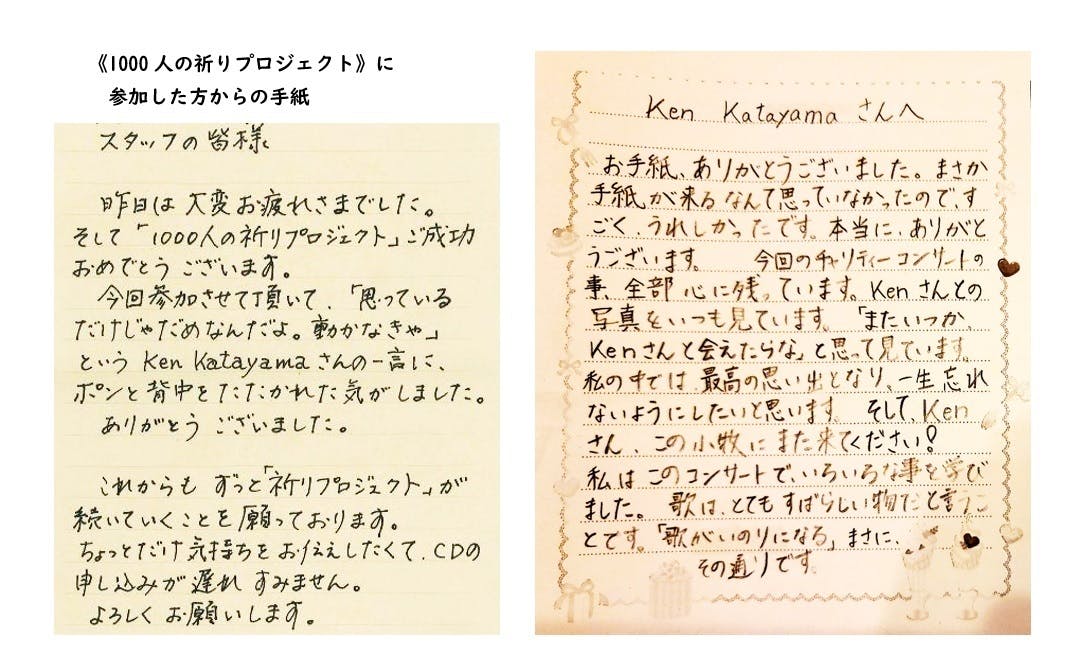 《1000人の祈りプロジェクト》に
参加した方からの手紙
スタッフの皆様
昨日は大変お疲れさまでした。
そして「1000人の祈りプロジェクト」ご成功
おめでとうございます。
今回参加させて頂いて、「思っている
だけじゃだめなんだよ。動かなきゃ」
という Ken Katayama さんの一言に、
ポンと背中をたたかれた気がしました。
ありがとうございました。
これからも ずっと「祈りプロジェクト」が
続いていくことを願っております。
ちょっとだけ気持ちをお伝えしたくて、CDの
申し込みが遅れすみません。
よろしくお願いします。
Ken Katayama さんへ
お手紙、ありがとうございました。まさか
手紙が来るなんて思っていなかったので、す
ごく、うれしかったです。本当に、ありがと
うございます。 今回のチャリティーコンサートの
事、全部心に残っています。Kenさんとの
写真をいつも見ています。「またいつか、
Kenさんと会えたらな」と思って見ています。
私の中では、最高の思い出となり、一生忘れ
ないようにしたいと思います。 そして、Ken
さん、この小牧にまた来てください!
私はこのコンサートで、いろいろな事を学び
ました。 歌は、とてもすばらしい物だと言うこ
とです。「歌がいのりになる」まさに、
その通りです。